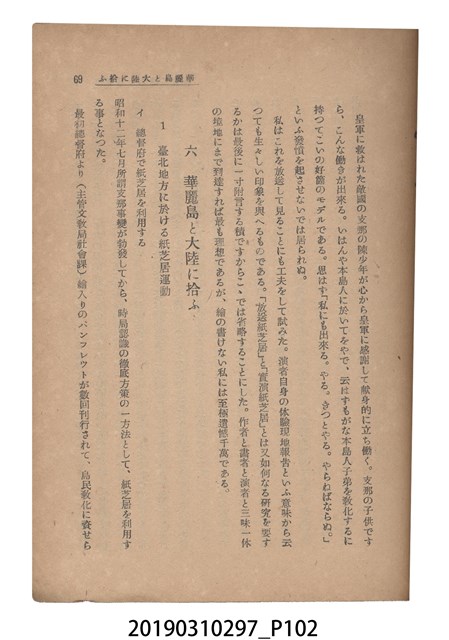 華麗島と大陸に拾ふ
69
皇軍に救はれた敵國の支那の陳少年が心から皇軍に感謝して献身的に立ち働く。支那の子供です
ら、こんな働きが出來る。いはんや本島人に於いてをやで、云はずもがな本島人子弟を敎化するに
持つてこいの好箇のモデルである。思はず「私にも出來る。やる。きつとやる。やらねばならぬ。」
といふ發憤を起させないでは居られぬ。
私はこれを放送して見ることにも工夫をして試みた。演者自身の体驗現地報告といふ意味から云
つても生々しい印象を與へるものである。「放送紙芝居」と「實演紙芝居」とは又如何なる研究を要す
るかは最後に一寸附言する積ですからこゝでは省略することにした。作者と畵者と演者と三味一体
の境地にまで到達すれば最も理想であるが、繪の書けない私には至極遺憾千萬である。
六 華麗島と大陸に拾ふ
1 臺北地方に於ける紙芝居運動
イ 總督府で紙芝居を利用する
昭和十二年七月所謂支那事變が勃發してから、時局認識の徹底方策の一方法として、紙芝居を利用す
る事となつた。
最初總督府より(主管文敎局社會課)繪入りのパンフレツトが數回刊行されて、島民敎化に資せら
20190310297_P102